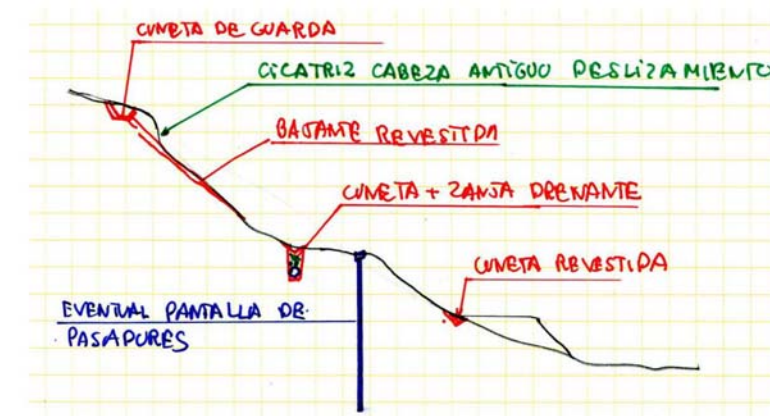 CUNETA DE GUARDA
CICATRIZ CABEZA ANTIGUO DESLIZAMIENTO
BAJANTE REVESTIDA
CUNETA + ZANJA DRENANTE
CUNETA REVESTIDA
EVENTUAL PANTALLA DE
PASADORES